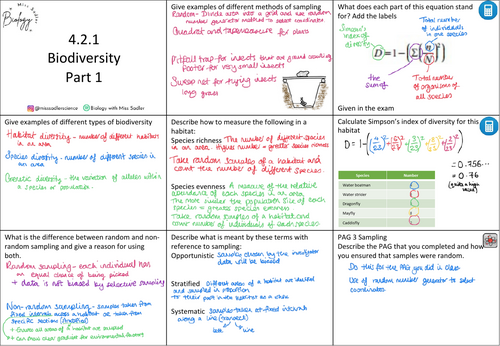 Miss Sadler
Biology
4.2.1
Biodiversity
Part 1
@missadlerscience
Biology with Miss Sadler
Give examples of different methods of sampling
Random- Divide area into a grid and use random
number generator method to select coordinates
Quadrat and tapemeasure for plants
Pitfall trap- for insects that are ground
Pooter- for very small insects
Sweep net for flying insects
long grass
What does each part of this equation stand
for? Add the labels
Simpson's
index of
diversity
Total number
of individuals
in one species
D = 1 − (Σ(n/N)²)
the
sum of
Total number
of organisms of
all species
Given in the exam
Give examples of different types of biodiversity
Habitat diversity - number of different habitats
in an area
Species diversity - number of different species in
an area
Genetic diversity - the variation of alleles within
a species or population
Describe how to measure the following in a
habitat:
Species richness The number of different species
in an area. Higher number = greater species richness
Take random samples of a habitat and
count the number of different species
Species evenness A measure of the relative
abundance of each species in an area.
The more similar the population size of each
species = greater species evenness
Take random samples of a habitat and
count number of individuals of each species
Calculate Simpson's index of diversity for this
habitat
D = 1 −
= 0.756...
= 0.76
(quite a high
value)
Species Number
Water boatman
Water stricker
Dragonfly
Mayfly
Caddisfly
What is the difference between random and non-
random sampling and give a reason for using
both.
Random sampling - each individual has
an equal chance of being picked
+ data is not biased by selective sampling
Non-random sampling - samples taken from
fixed intervals across a habitat or taken from
specific sections (stratified)
+ Ensures all areas of a habitat are sampled
+ Can show clear gradient for environmental factors
Describe what is meant by these terms with
reference to sampling:
Opportunistic Sample chosen by the investigator
data will be biased
Stratified Different areas of a habitat are identified
and sampled in proportion
to their part in the habitat as a whole
Systematic samples taken at fixed intervals
along a line (transect)
belt line
PAG 3 Sampling
Describe the PAG that you completed and how
you ensured that samples were random.
Do this for the PAG you did in class
Use of random number generator to select
coordinates